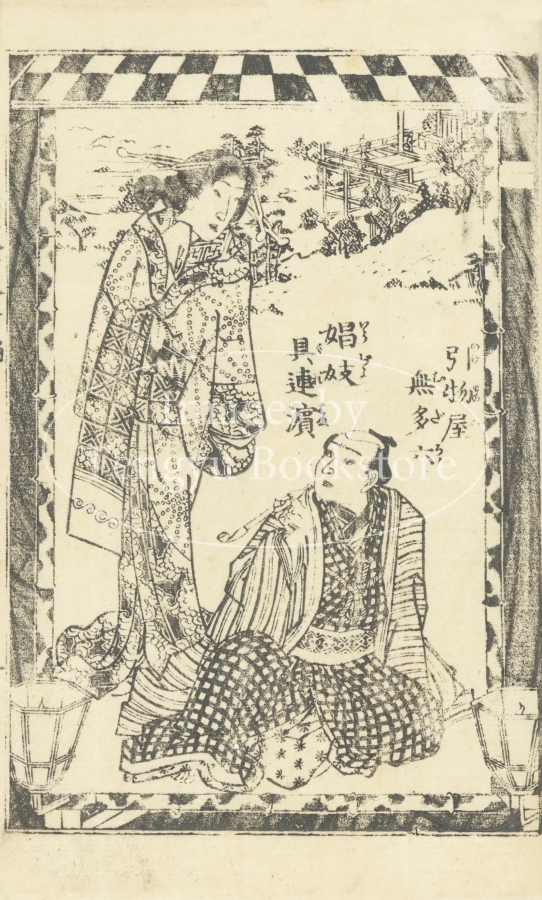 引物屋
無多六
娼妓
具連濱
Images by
Tengyu Bookstore